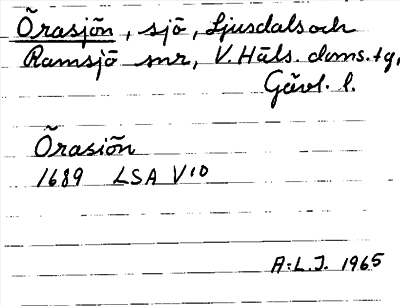 Örasjön, sjö, Ljusdals och
Ramsjö snr, V. Häls. doms. tg,
Gävl. l.
Örasiön
1689 LSA V10
A.L.J. 1965